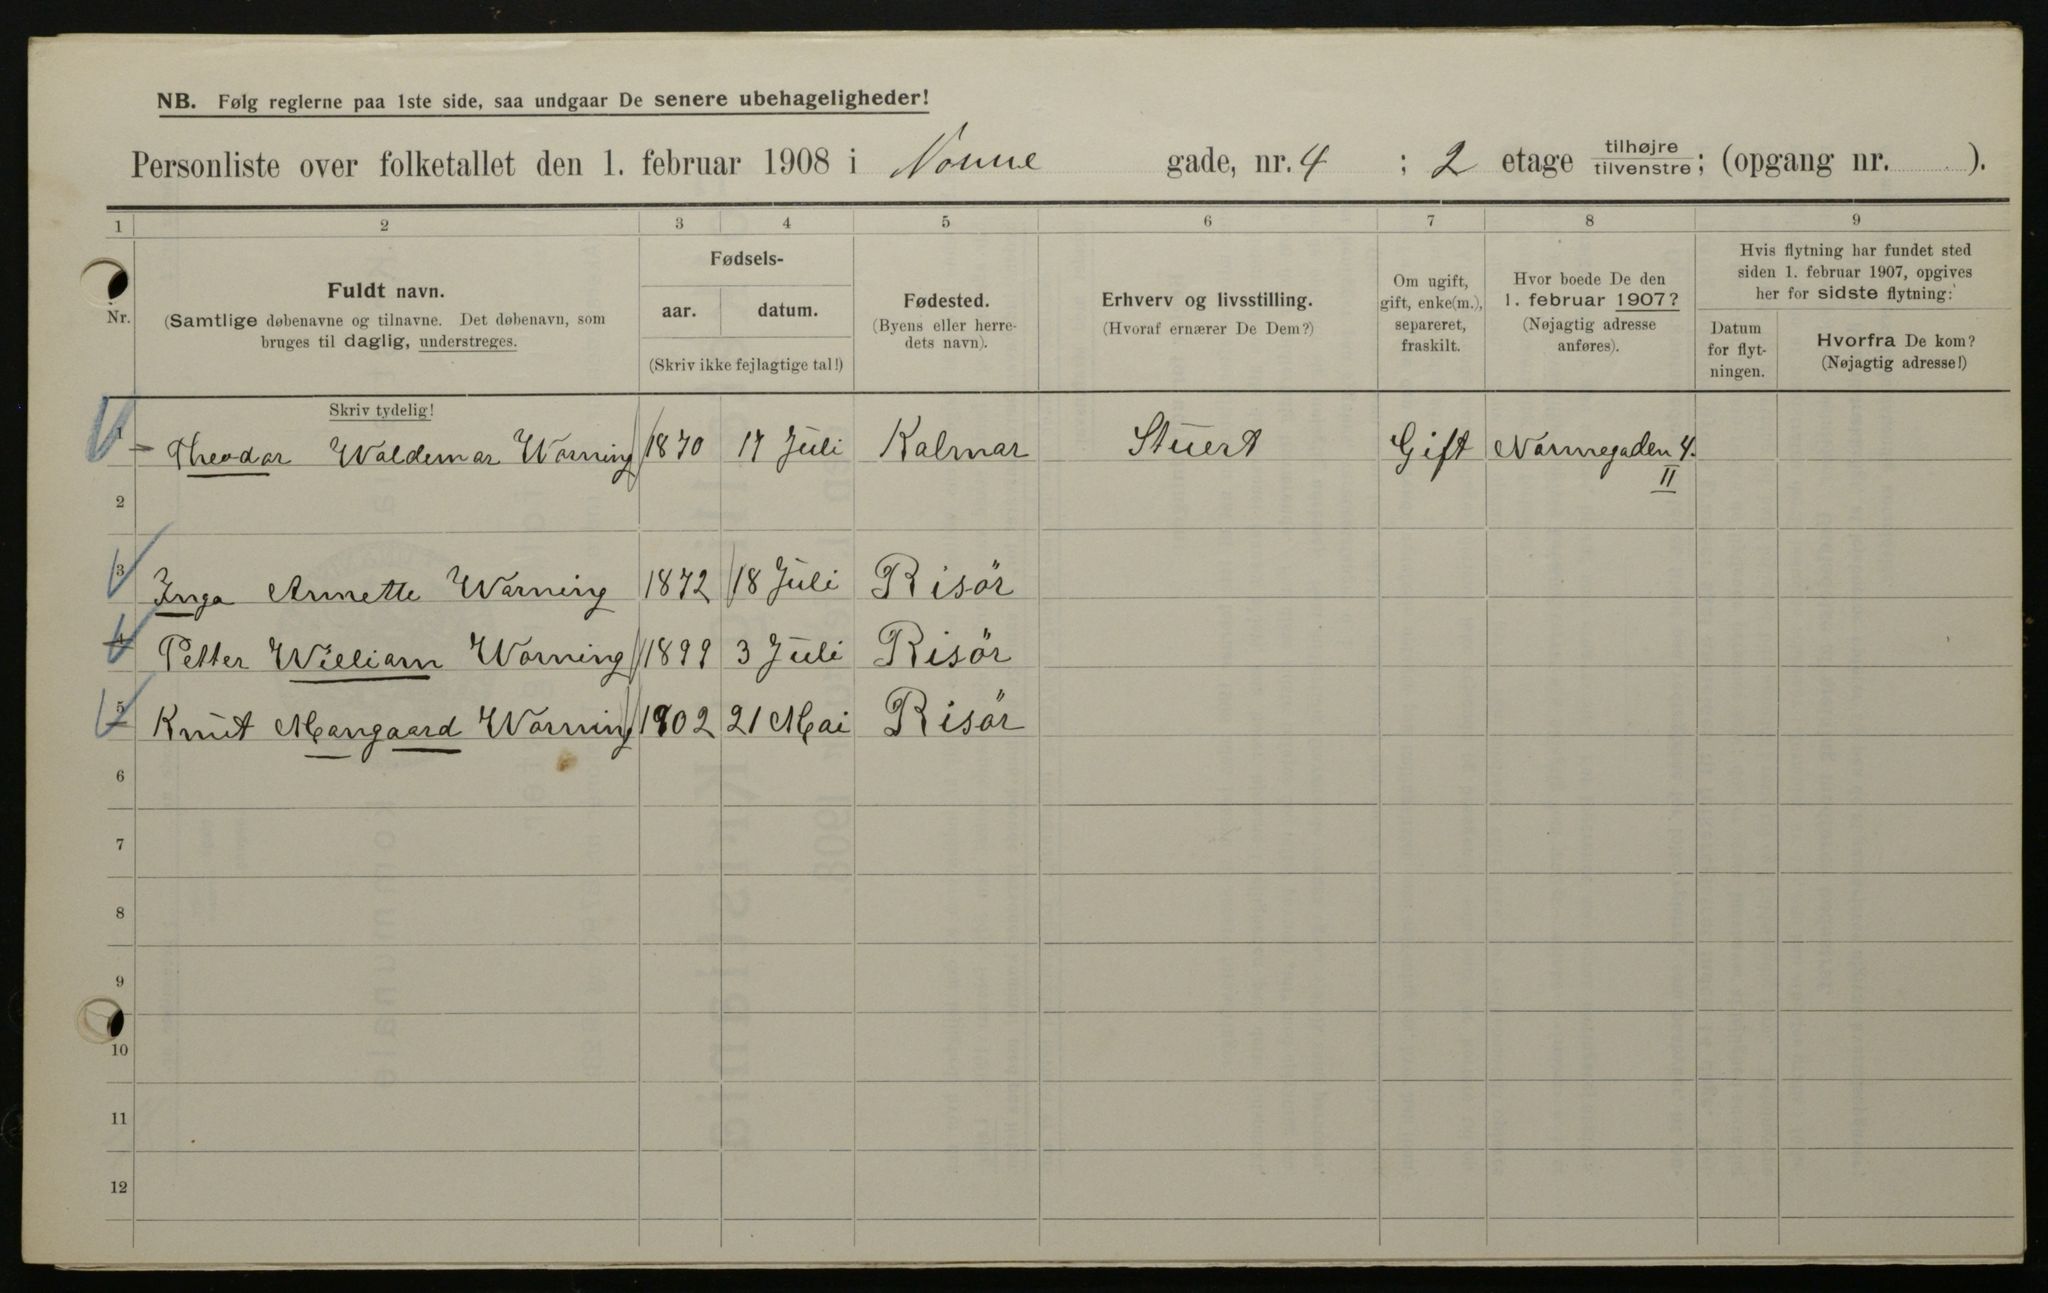 NB. Følg reglerne paa 1ste side, saa undgaar De senere ubehageligheder!
Personliste over folketallet den 1. februar 1908 i Nonne gade, nr. 4 ; 2 etage tilhøjre tilvenstre ; (opgang nr. ).
1 2 3 4 5 6 7 8 9
Nr.
Fuldt navn.
(Samtlige døbenavne og tilnavne. Det døbenavn, som
bruges til daglig, understreges.
Skriv tydelig!
Fødsels-
aar. datum.
(Skriv ikke fejlagtige tal!)
Fødested.
(Byens eller herre-
dets navn).
Erhverv og livsstilling.
(Hvoraf ernærer De Dem?)
Om ugift,
gift, enke(m.),
separeret,
fraskilt.
Hvor boede De den
1. februar 1907?
(Nøjagtig adresse
anføres).
Hvis flytning har fundet sted
siden 1. februar 1907, opgives
her for sidste flytning:
Datum
for flyt-
ningen.
Hvorfra De kom?
(Nøjagtig adresse!)
1 Theodor Waldemar Worning 1870 17 Juli Kalmar Stuert Gift Nonnegaden 4.
II
2
3 Inga Annette Worning 1872 18 Juli Risör
4 Petter William Worning 1899 3 Juli Risör
5 Knut Mangaard Worning 1902 21 Mai Risör
6
7
8
9
10
11
12